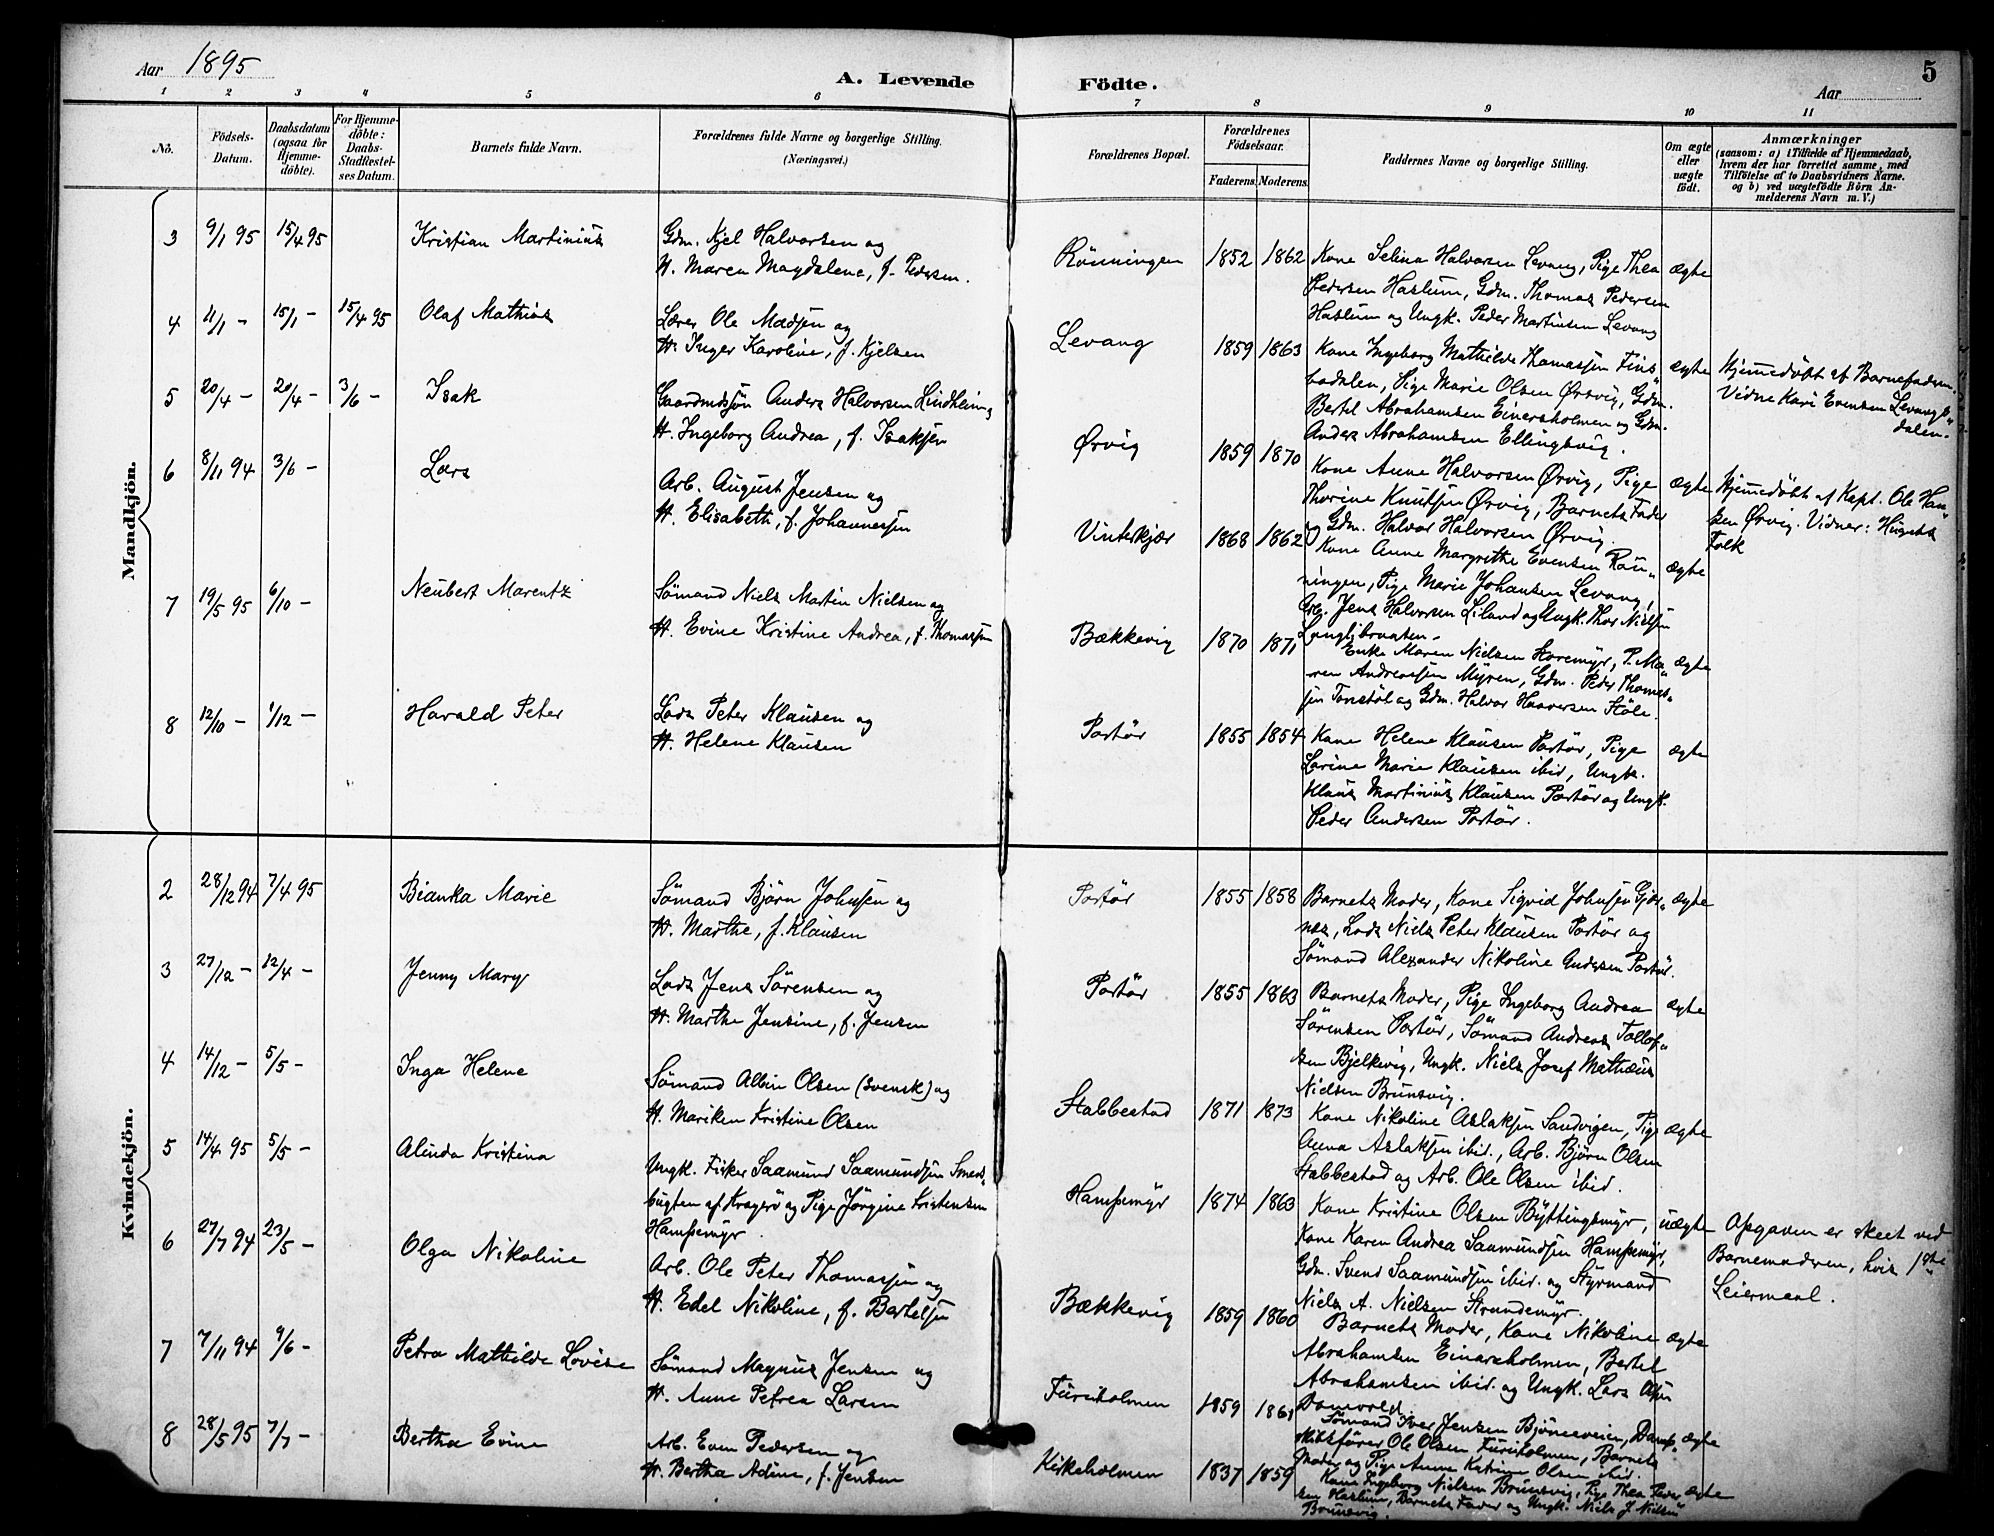 Aar 1895
A. Levende Födte.
5
Aar
1 2 3 4 5 6 7 8 9 10 11
No.
Födsels-
Datum.
Daabsdatum
(ogsaa for
Hjemme-
döbte).
For Hjemme-
döbte:
Daabs-
Stadfæstel-
ses Datum.
Barnets fulde Navn.
Forældrenes fulde Navne og borgerlige Stilling.
(Næringsvei.)
Forældrenes Bopæl.
Forældrenes
Födselsaar.
Faderens. Moderens.
Faddernes Navne og borgerlige Stilling.
Om ægte
eller
uægte
födt.
Anmærkninger
(saasom: a) i Tilfælde af Hjemmedaab,
hvem der har forrettet samme, med
Tilföielse af to Daabsvidners Navne.
og b) ved uægtefödte Börn An-
melderens Navn m. V.)
Mandkjön.
3 9/1 95 15/4 95 Kristian Martinius
Gdm. Kjel Halvorsen og
H. Maren Magdalene, f. Pedersen.
Rönningen 1852 1862
Kone Selina Halvorsen Levang, Pige Thea
Pedersen Haslum, Gdm. Thomas Pedersen
Haslum og Ungk. Peder Martinsen Levang
ægte
4 11/1 - 15/1 - 15/4 95 Olaf Mathias
Lærer Ole Madsen og
H. Inger Karoline, f. Kjelsen
Levang 1859 1863
Kone Ingeborg Mathilde Thomassen Fins„
bodalen, Pige Marie Olsen Ørvig, Gdm.
Bertel Abrahamsen Einersholmen og Gdm.
Anders Abrahamsen Ellingsvig.
ægte
Hjemmedöbt af Barnefaderen.
Vidne Kari Evensen Levangs„
dalen.
5 20/4 - 20/4 - 3/6 - Isak
Gaardmdsön Anders Halvorsen Lindheim og
H. Ingeborg Andrea, f. Isaksen
Ørvig 1859 1870
Kone Anne Halvorsen Ørvig, Pige
Thorine Knutsen Ørvig, Barnets Fader
og Gdm. Halvor Halvorsen Ørvig.
ægte
Hjemmedöbt af Kapt. Ole Han„
sen Ørvig. Vidner: Husets
Folk
6 8/11 94 3/6 - Lars
Arb. August Jensen og
H. Elisabeth, f. Johannessen
Vinterkjær 1868 1862
Kone Anne Margrethe Evensen Rön„
ningen, Pige Marie Johansen Levang,
Arb. Jens Halvorsen Liland og Ungk. Thor Nielsen
Langlibraaten.
ægte
7 19/5 95 6/10 - Neubert Marentz
Sömand Niels Martin Nielsen og
H. Evine Kristine Andrea, f. Thomassen
Bækkevig 1870 1871
Enke Maren Nielsen Storemyr, P. Ma„
ren Andreassen Myren, Gdm. Peder Thomas„
sen Tonstöl og Gdm. Halvor Haaversen Stöle.
ægte
8 12/10 - 1/12 - Harald Peter
Lods Peter Klausen og
H. Helene Klausen
Portör 1855 1854
Kone Helene Klausen Portör, Pige
Larine Marie Klausen ibid, Ungk.
Klaus Martinius Klausen Portör og Ungk.
Peder Andersen Portör.
ægte
Kvindekjön.
2 28/12 94 7/4 95 Bianka Marie
Sömand Björn Johnsen og
H. Marthe, f. Klausen
Portör 1855 1858
Barnets Moder, Kone Sigrid Johnsen Gjær„
nes, Lods Niels Peter Klausen Portör og
Sömand Alexander Nikoline Andersen Portör.
ægte
3 27/12 - 12/4 - Jenny Mary
Lods Jens Sörensen og
H. Marthe Jensine, f. Jensen
Portör 1855 1863
Barnets Moder, Pige Ingeborg Andrea
Sörensen Portör, Sömand Andreas Tollof„
sen Bjelkevig, Ungk. Niels Josef Mathæus
Nielsen Brunsvig.
ægte
4 14/12 - 5/5 - Inga Helene
Sömand Albin Olsen (svensk) og
H. Mariken Kristine Olsen
Stabbestad 1871 1873
Kone Nikoline Aslaksen Sandvigen, Pige
Anna Aslaksen ibid., Arb. Björn Olsen
Stabbestad og Arb. Ole Olsen ibid.
ægte
5 14/4 95 5/5 - Alinda Kristina
Ungk. Fisker Saamund Saamundsen Smeds„
bugten af Kragerö og Pige Jörgine Kristensen
Hampemyr.
Hampemyr 1874 1863
Kone Kristine Olsen Byttingsmyr,
Kone Karen Andrea Saamundsen Hampemyr,
Gdm. Svend Saamundsen ibid. og Styrmand
Niels A. Nielsen Strandemyr.
uægte
Opgaven er skeet ved
Barnemoderen, hvis 1ste
Leiermaal.
6 27/7 94 23/5 - Olga Nikoline
Arb. Ole Peter Thomassen og
H. Edel Nikoline, f. Bertelsen
Bækkevig 1859 1860
Barnets Moder, Kone Nikoline
Abrahamsen Einarsholmen, Bertel
Abrahamsen ibid. og Ungk. Lars Olsen
ægte
7 7/11 94 9/6 - Petra Mathilde Lovise
Sömand Magnus Jensen og
H. Anne Petrea Larsen
Furuholmen 1859 1861
Sömand Iver Jensen Björneveien, Damp„
skibsförer Ole Olsen Furuholmen, Barnets
Moder og Pige Anne Katrine Olsen ibid.
ægte
8 28/5 95 7/7 - Bertha Evine
Arb. Even Pedersen og
H. Bertha Adine, f. Jensen
Kirkeholmen 1837 1859
Kone Ingeborg Nielsen Brunsvig, Pige Thea Peder
sen Haslum, Barnets Fader og Ungk. Niels J. Nielsen
Brunsvig.
ægte